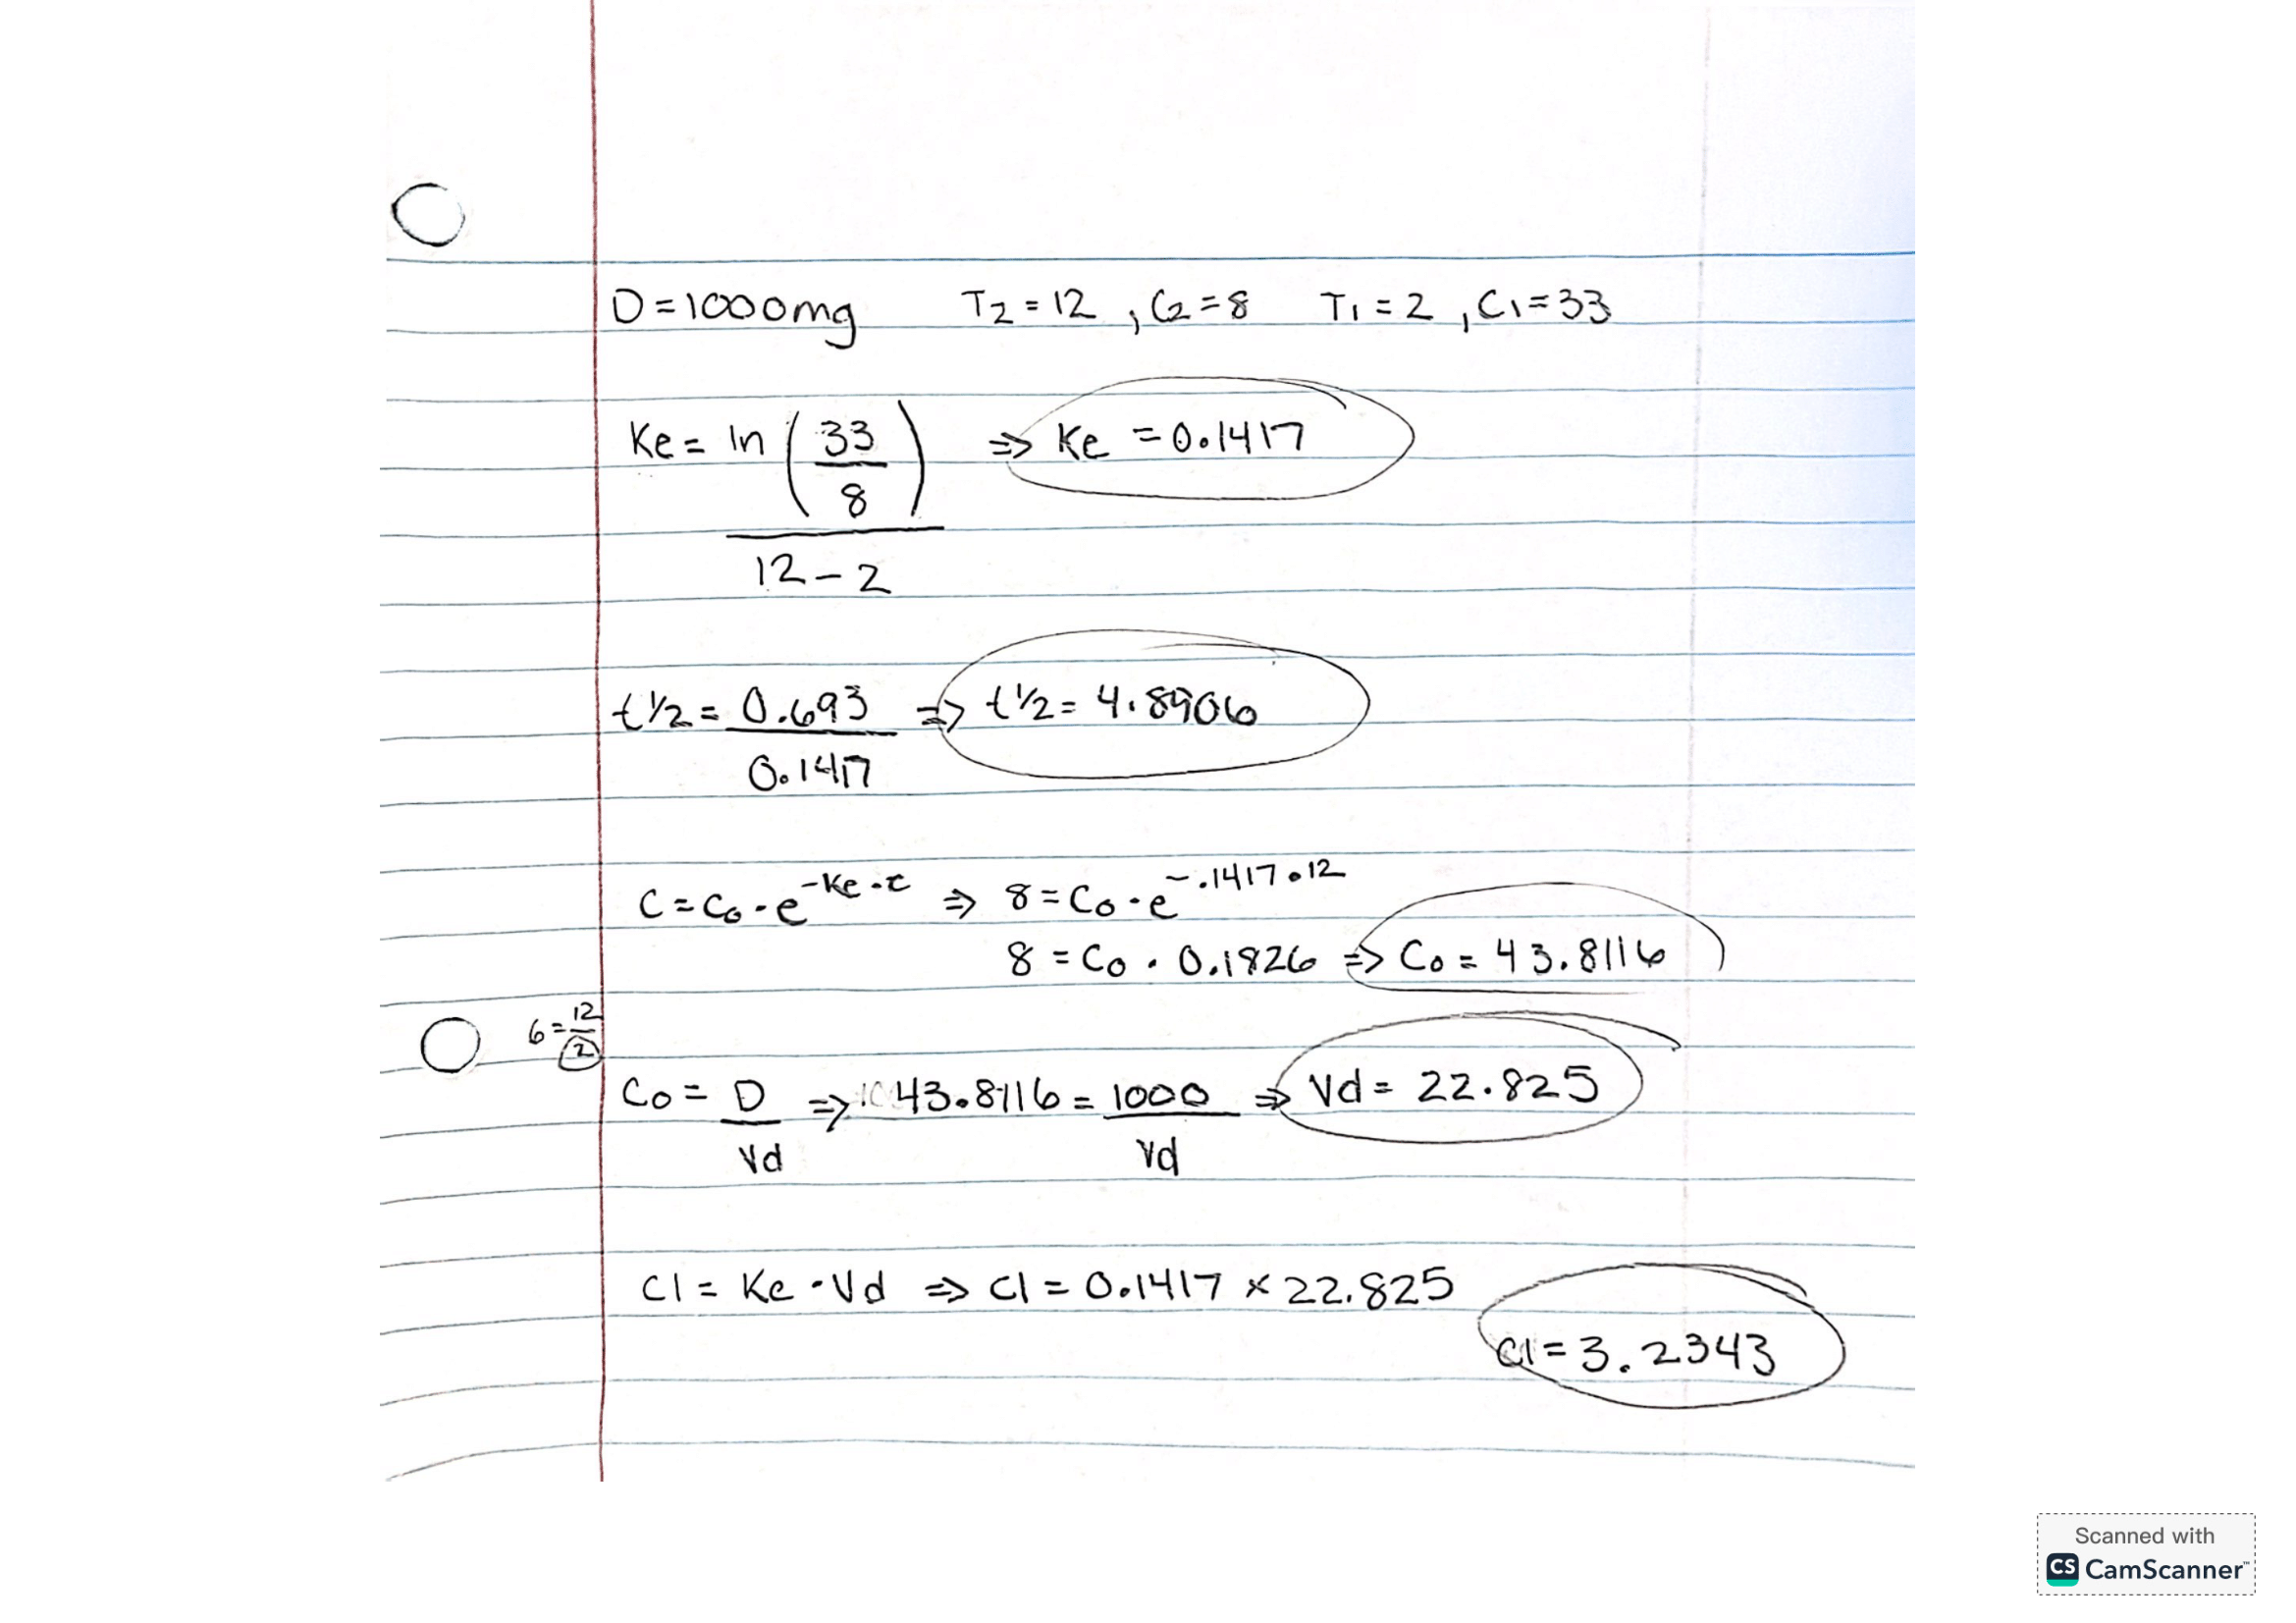 D = 1000mg T2 = 12 , C2 = 8 T1 = 2 , C1 = 33
Ke = ln ( 33 / 8 ) ⇒ Ke = 0.1417
12 - 2
t½ = 0.693 ⇒ t½ = 4.8906
0.1417
C = Co · e^-Ke·t ⇒ 8 = Co · e^-.1417·12
8 = Co · 0.1826 ⇒ Co = 43.8116
6 = 12
2
Co = D ⇒ 43.8116 = 1000 ⇒ Vd = 22.825
Vd Vd
Cl = Ke · Vd ⇒ Cl = 0.1417 × 22.825
Cl = 3.2343
Scanned with
CS CamScanner™